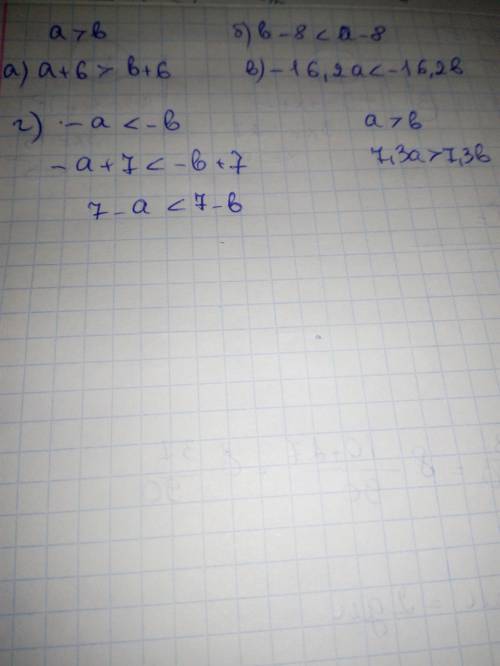 a > b
б) b - 8 < a - 8
а) a + 6 > b + 6
в) - 16,2a < -16,2b
г) - a < - b
a > b
- a + 7 < - b + 7
7,3a > 7,3b
7 - a < 7 - b